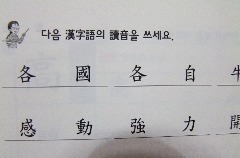 다음 漢字語의 讀音을 쓰세요.
各 國 各 自
感 動 強 力 開